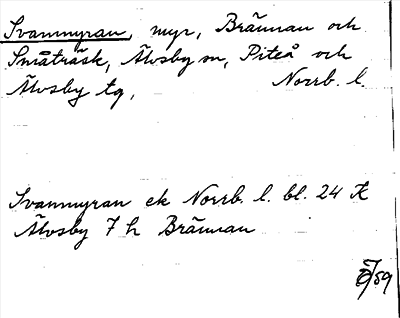 Svanmyran, myr, Brännan och
Småträsk, Älvsby sn, Piteå och
Älvsby tg, Norrb. l.
Svanmyran ek Norrb. l. bl. 24 K
Älvsby 7 h Brännan
/59